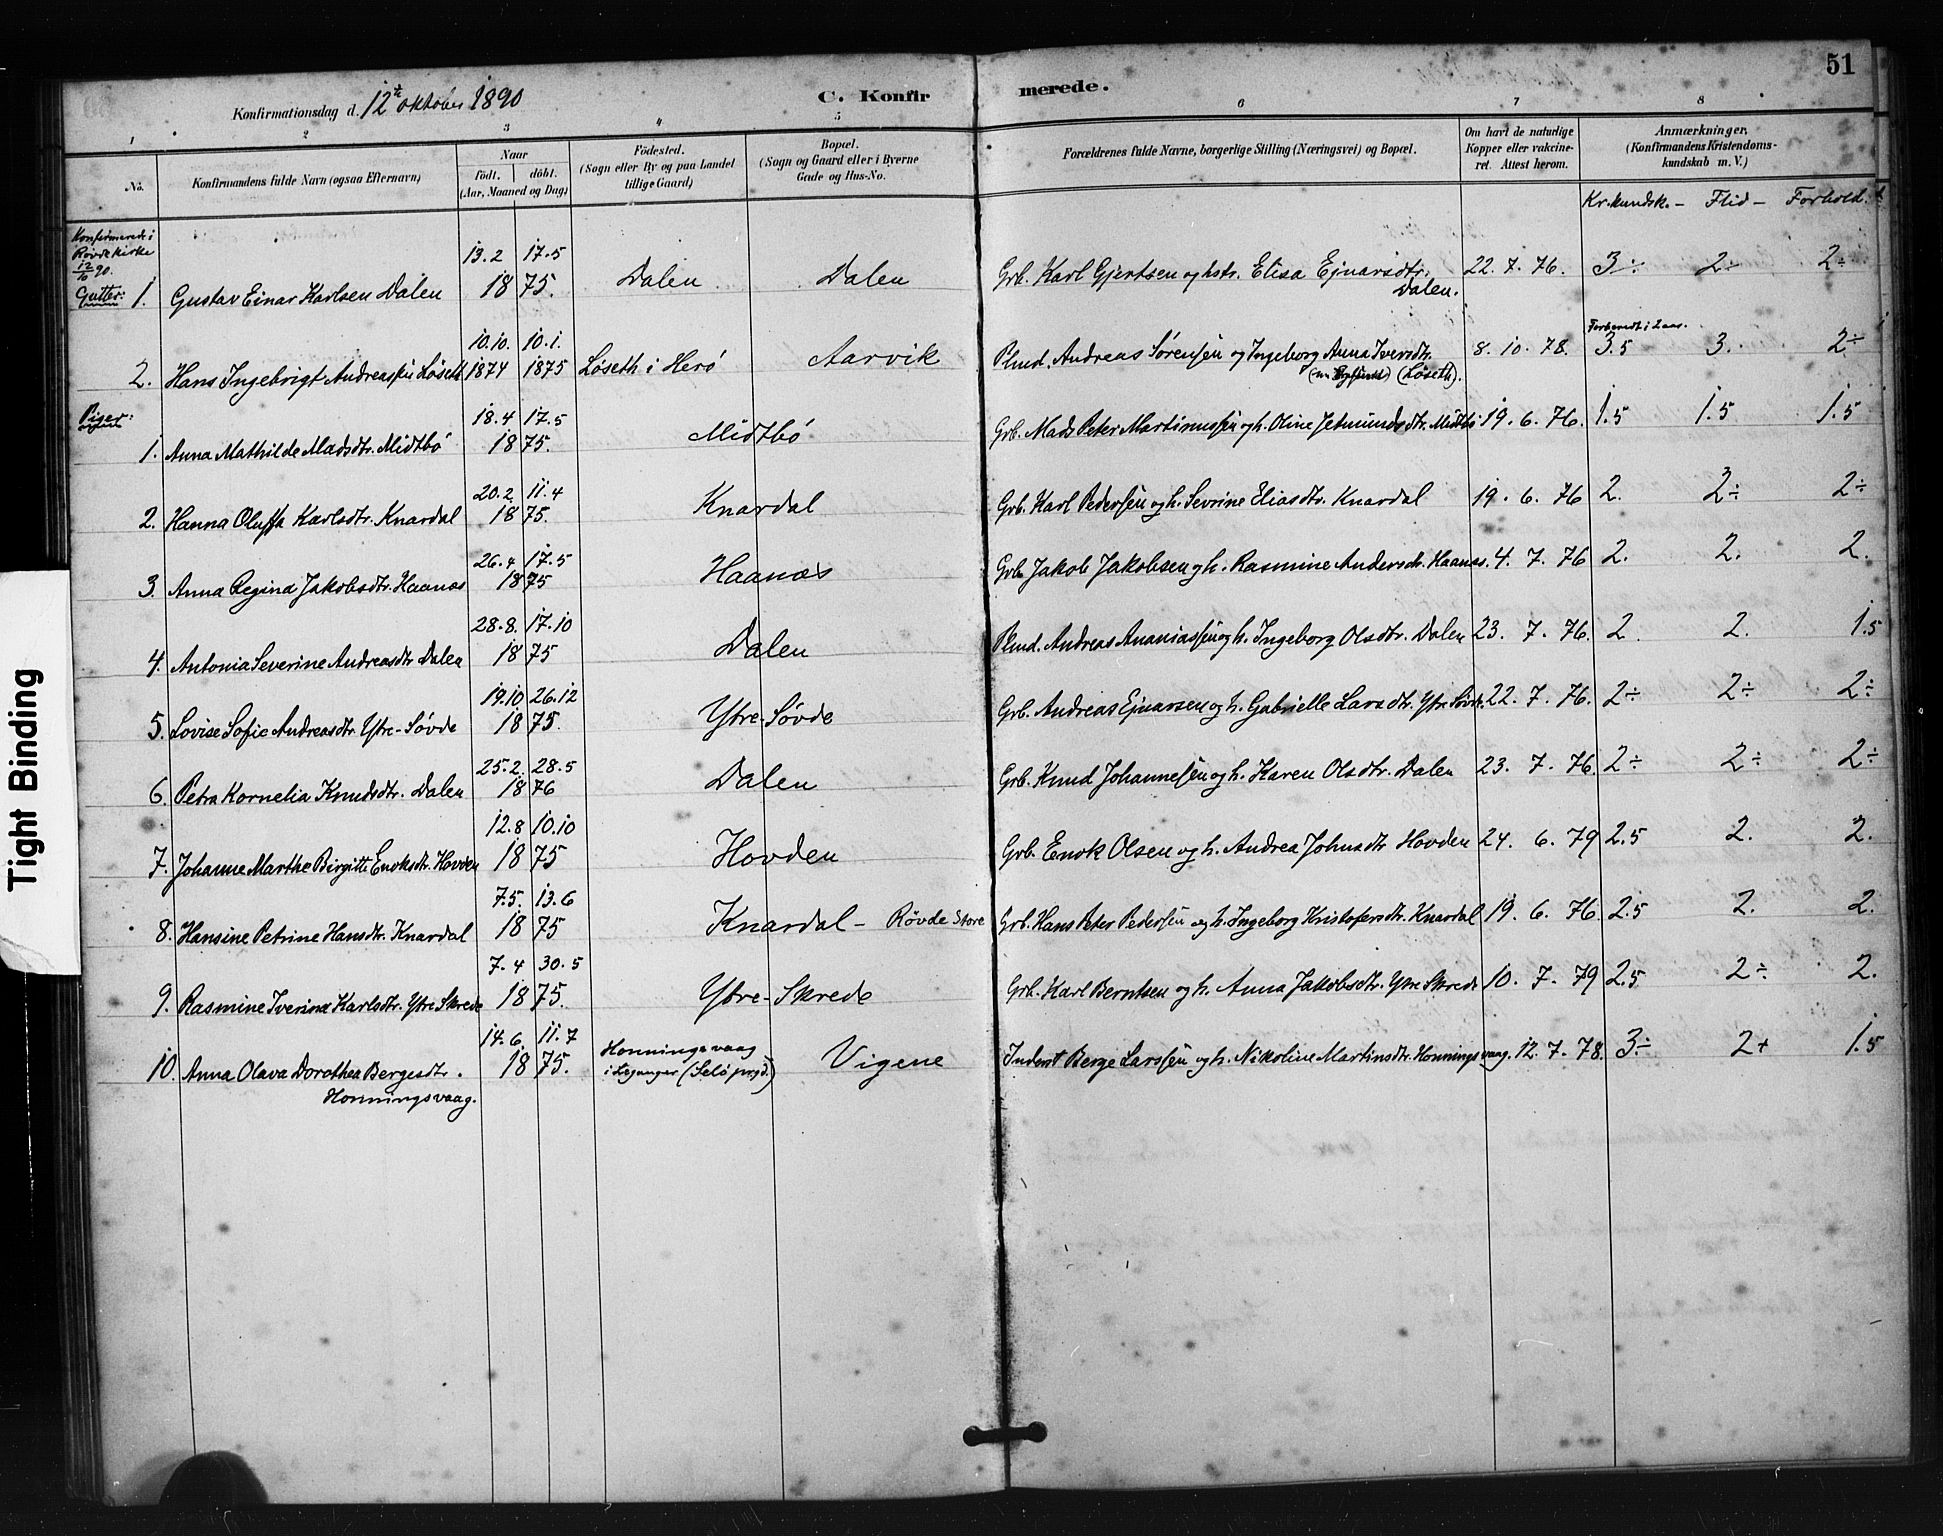 51
Konfirmationsdag d. 12te oktober 1890
C. Konfirmerede.
1 2 3 4 5 6 7 8
No.
Konfirmandens fulde Navn (ogsaa Efternavn)
Naar
födt. döbt.
(Aar, Maaned og Dag)
Födested.
(Sogn eller By og paa Landet
tillige Gaard)
Bopæl.
(Sogn og Gaard eller i Byerne
Gade og Hus-No.
Forældrenes fulde Navne, borgerlige Stilling (Næringsvei) og Bopæl.
Om havt de naturlige
Kopper eller vakcine-
ret. Attest herom.
Anmærkninger.
(Konfirmandens Kristendoms-
kundskab m. V.)
Kr.kundsk. – Flid – Forhold.
Konfirmerede i
Røvde kirke
12/10 90.
Gutter:
13.2 17.5
1. Gustav Einar Karlsen Dalen 18 75. Dalen Dalen Grb. Karl Gjertsen og hstr. Elisa Ejnarsdtr. Dalen. 22. 7. 76. 3÷ 2÷ 2÷
10.10. 10.1.
Forberedt i 2 aar.
2. Hans Ingebrigt Andreassen Løseth 1874 1875 Løseth i Herö Aarvik Plmd. Andreas Sørensen og Ingeborg Anna Iversdtr. (Løseth). 8. 10. 78. 3.5 3. 2÷
Piger:
18.4 17.5
1. Anna Mathilde Madsdtr. Midtbö 18 75. Midtbö Grb. Mads Peter Martinussen og h. Oline Jetmundsdtr. Midtbö 19. 6. 76. 1.5 1.5 1.5
20.2. 11.4
2. Hanna Oluffa Karlsdtr. Knardal 18 75. Knardal Grb. Karl Pedersen og h. Sevrine Eliasdtr. Knardal 19. 6. 76 2. 2÷ 2÷
26.4 17.5
3. Anna Regina Jakobsdtr. Haanæs 18 75 Haanæs Grb. Jakob Jakobsen og h. Rasmine Andersdtr. Haanæs. 4. 7. 76 2. 2. 2.
28.8. 17.10
4. Antonia Severine Andreasdtr Dalen 18 75 Dalen Plmd. Andreas Ananiassen og h. Ingeborg Olsdtr. Dalen 23. 7. 76. 2. 2. 1.5
19.10. 26.12
5. Lovise Sofie Andreasdtr. Ytre-Søvde 18 75. Ytre-Søvde Grb. Andreas Ejnarsen og h. Gabrielle Larsdtr. Ytre Søvde. 22. 7. 76. 2÷ 2÷ 2÷
25.2. 28.5
6. Petra Kornelia Knudsdtr. Dalen 18 76 Dalen Grb. Knud Johannesen og h. Karen Olsdtr. Dalen 23. 7. 76. 2÷ 2÷ 2÷
12.8 10.10
7. Johanne Marthe Birgitte Enoksdtr. Hovden 18 75 Hovden Grb. Enok Olsen og h. Andrea Johnsdtr Hovden 24. 6. 79 2.5 2. 2.
7.5. 13.6
8. Hansine Petrine Hansdtr. Knardal 18 75 Knardal – Røvde Store Grb. Hans Peter Pedersen og h. Ingeborg Kristofersdtr. Knardal 19. 6. 76. 2.5 2. 2.
7.4 30.5
9. Rasmine Iverina Karlsdtr. Ytre Skrede 18 75. Ytre-Skrede Grb. Karl Berntsen og h. Anna Jakobsdtr. Ytre Skrede 10. 7. 79 2.5 2÷ 2.
14.6. 11.7
10. Anna Olava Dorothea Bergesdtr. Honningsvaag. 18 75. Honningsvaag i Leganger (Selö prgd.) Vigene Inderst Berge Larssen og h. Nikoline Martinsdtr. Honningsvaag. 12. 7. 78. 3÷ 2+ 1.5
Tight Binding